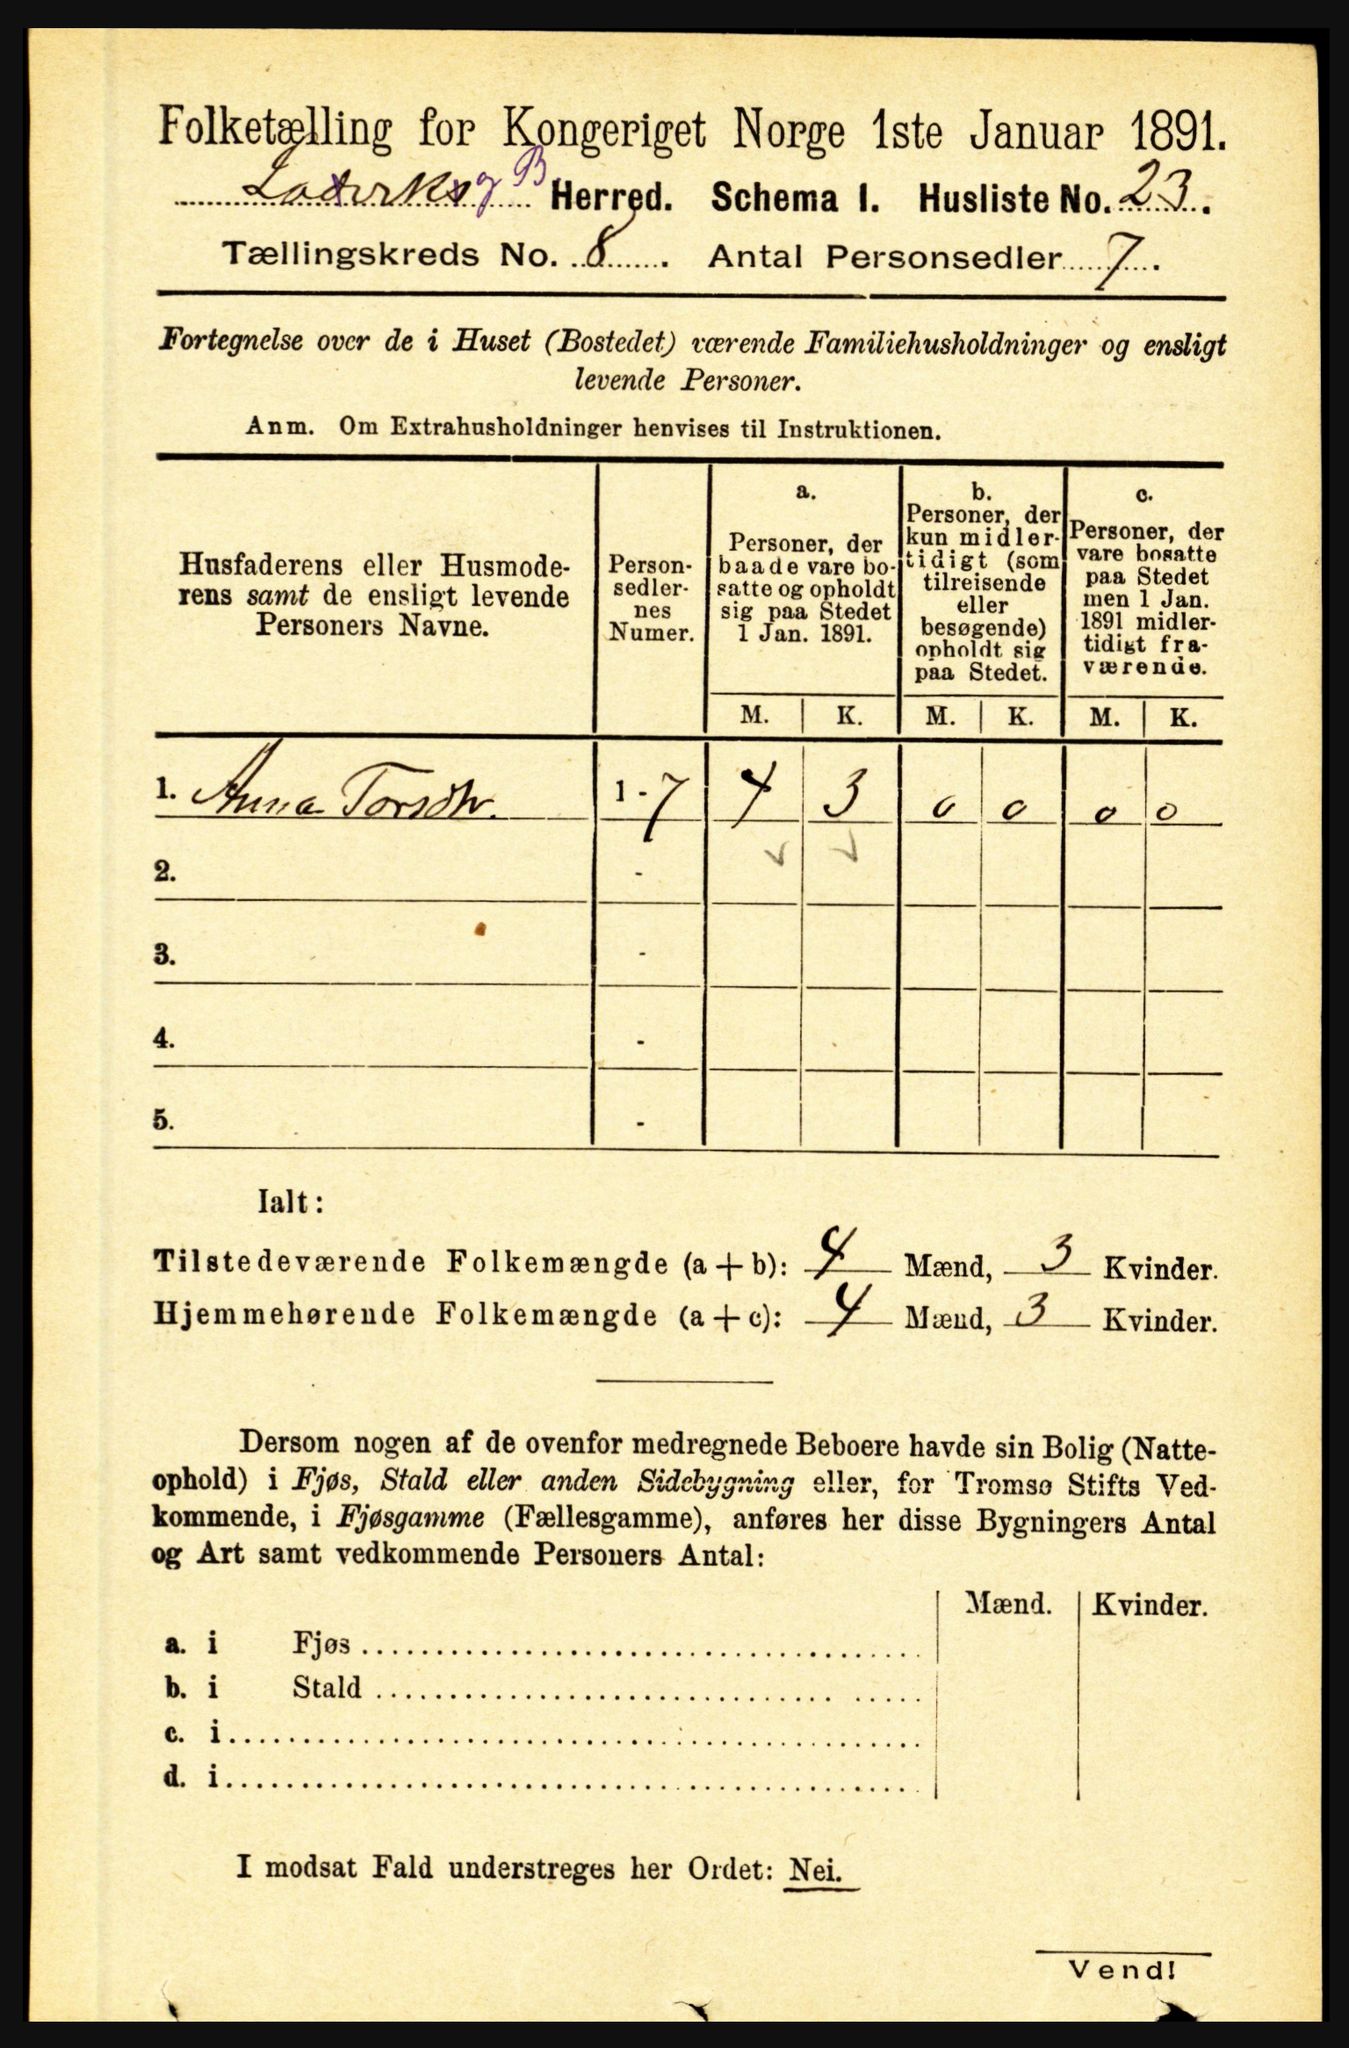 Folketælling for Kongeriget Norge 1ste Januar 1891.
Herred. Schema I. Husliste No. 23.
Tællingskreds No. 8. Antal Personsedler 7.
Fortegnelse over de i Huset (Bostedet) værende Familiehusholdninger og ensligt
levende Personer.
Anm. Om Extrahusholdninger henvises til Instruktionen.
Husfaderens eller Husmode-
rens samt de ensligt levende
Personers Navne.
Person-
sedler-
nes
Numer.
a.
Personer, der
baade vare bo-
satte og opholdt
sig paa Stedet
1 Jan. 1891.
b.
Personer, der
kun midler-
tidigt (som
tilreisende
eller
besøgende)
opholdt sig
paa Stedet.
c.
Personer, der
vare bosatte
paa Stedet
men 1 Jan.
1891 midler-
tidigt fra-
værende.
M. K. M. K. M. K.
1. Anna Torsdtr. 1 - 7 4 3 0 0 0 0
2. -
3. -
4. -
5. -
Ialt:
Tilstedeværende Folkemængde (a + b): 4 Mænd, 3 Kvinder.
Hjemmehørende Folkemængde (a + c): 4 Mænd, 3 Kvinder.
Dersom nogen af de ovenfor medregnede Beboere havde sin Bolig (Natte-
ophold) i Fjøs, Stald eller anden Sidebygning eller, for Tromsø Stifts Ved-
kommende, i Fjøsgamme (Fællesgamme), anføres her disse Bygningers Antal
og Art samt vedkommende Personers Antal:
Mænd. Kvinder.
a. i Fjøs
b. i Stald
c. i
d. i
I modsat Fald understreges her Ordet: Nei.
Vend!